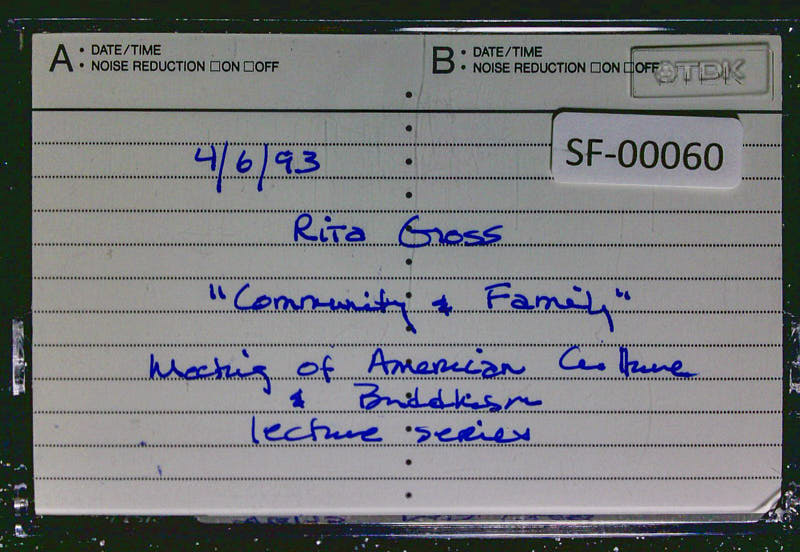 A: DATE/TIME
NOISE REDUCTION □ON □OFF
B: DATE/TIME
NOISE REDUCTION □ON □OFF
TDK
SF-00060
4/6/93
Rita Gross
"Community & Family"
Meeting of American Culture
& Buddhism
lecture series